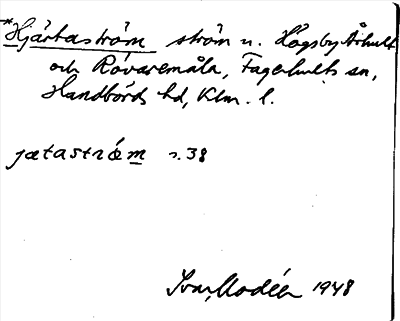 *Hjärtaström ström n. Högsby Århult
och Rövaremåla, Fagerhults sn,
Handbörds hd, Klm. l.
jætaström s. 38
Ivar Modéer 1948